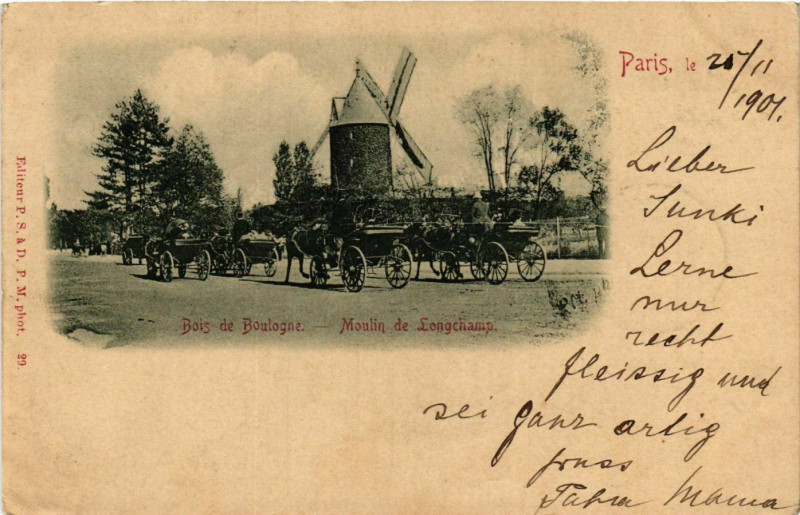 Paris, le 25/11
1901.
Lieber
Junki
Lerne
nur
recht
fleissig und
sei ganz artig
Mama
Bois de Boulogne. — Moulin de Longchamp.
Editeur P. S. à D. P. M, phot. 29.